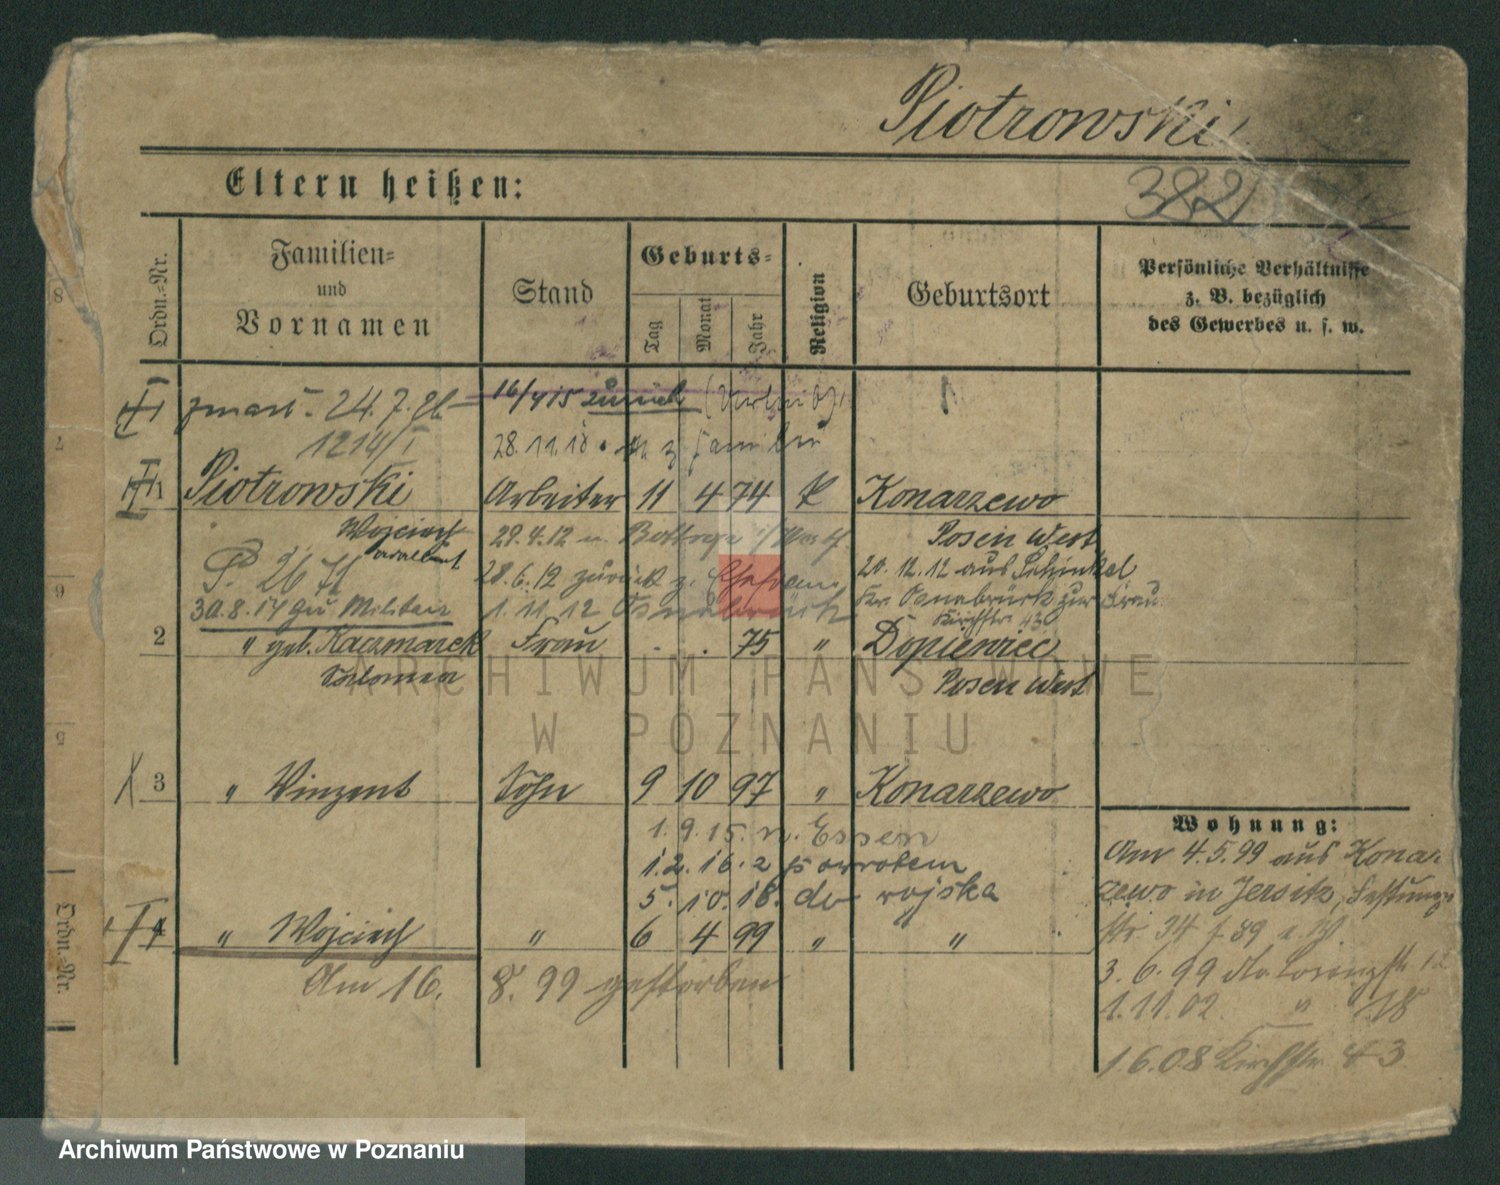 Piotrowski
382
Eltern heißen:
Ordn.-Nr.
Familien- und Vornamen
Stand
Geburts-
Tag
Monat
Jahr
Religion
Geburtsort
Persönliche Verhältnisse z. B. bezüglich des Gewerbes u. s. w.
zmarł 24.7.26
16/4 15 zurück
1214/I
28.11.18 z Familie
1 Piotrowski Arbeiter 11 4 74 K Konarzewo
Wojciech
29.4.12 n. Bottrop
Posen West
28.6.12 zurück z. Ehefrau
20.12.12 aus Schinkel
30.8.14 zu Militair
1.11.12 Osnabrück
Kr. Osnabrück zur Frau
Kirchstr. 43
2 " geb. Kaczmarek Frau . . 75 " Dopiewiec
Salomea
Posen West
ARCHIWUM PAŃSTWOWE
W POZNANIU
3 " Vinzent Sohn 9 10 97 " Konarzewo
1.9.15. n. Essen
1.2.16. z powrotem
5.10.18. do wojska
4 " Wojciech " 6 4 99 " "
Am 16. 8. 99 gestorben
Wohnung:
Am 4.5.99 aus Konar-
zewo in Jersitz, Festungs-
str. 34
3.6.99
1.11.02. " 18
1.6.08 Kirchstr. 43
Ordn.-Nr.
Archiwum Państwowe w Poznaniu